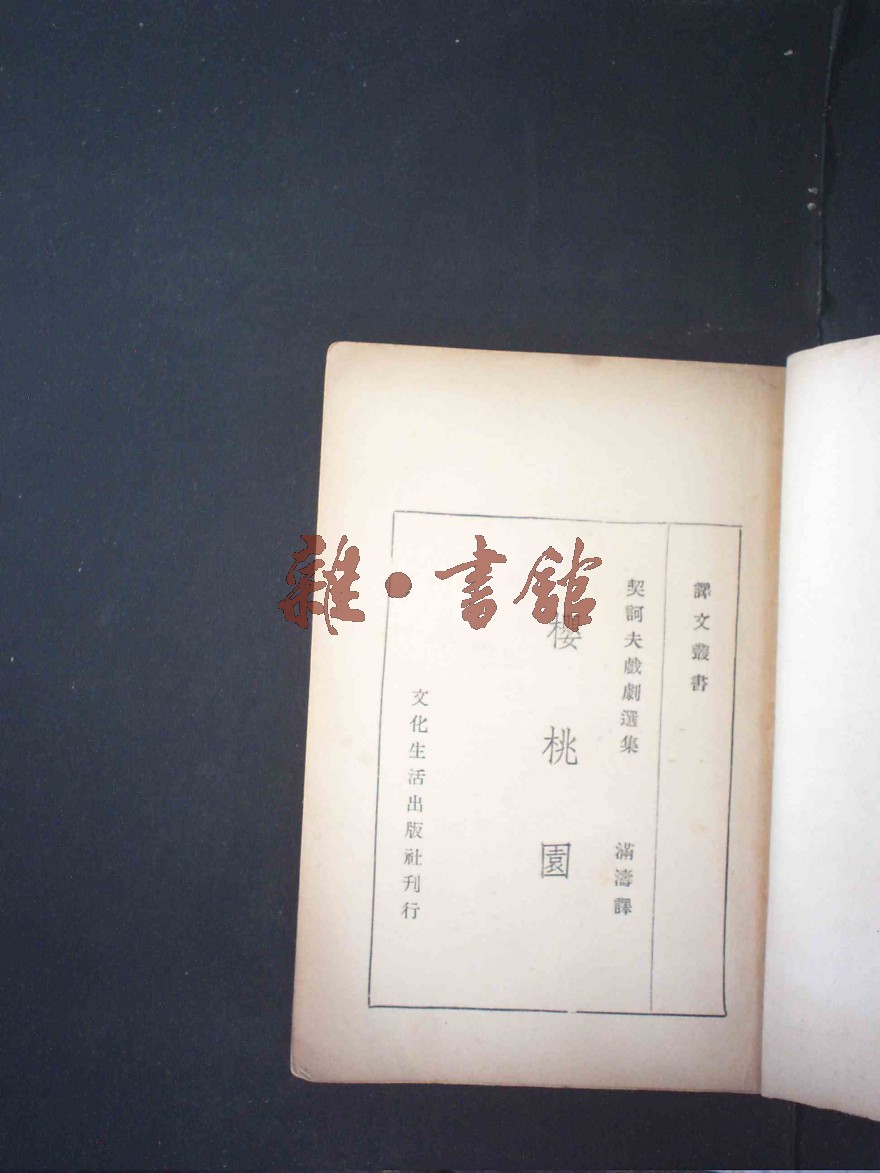 譯文叢書
契訶夫戲劇選集
滿濤譯
櫻桃園
文化生活出版社刊行
雜·書館